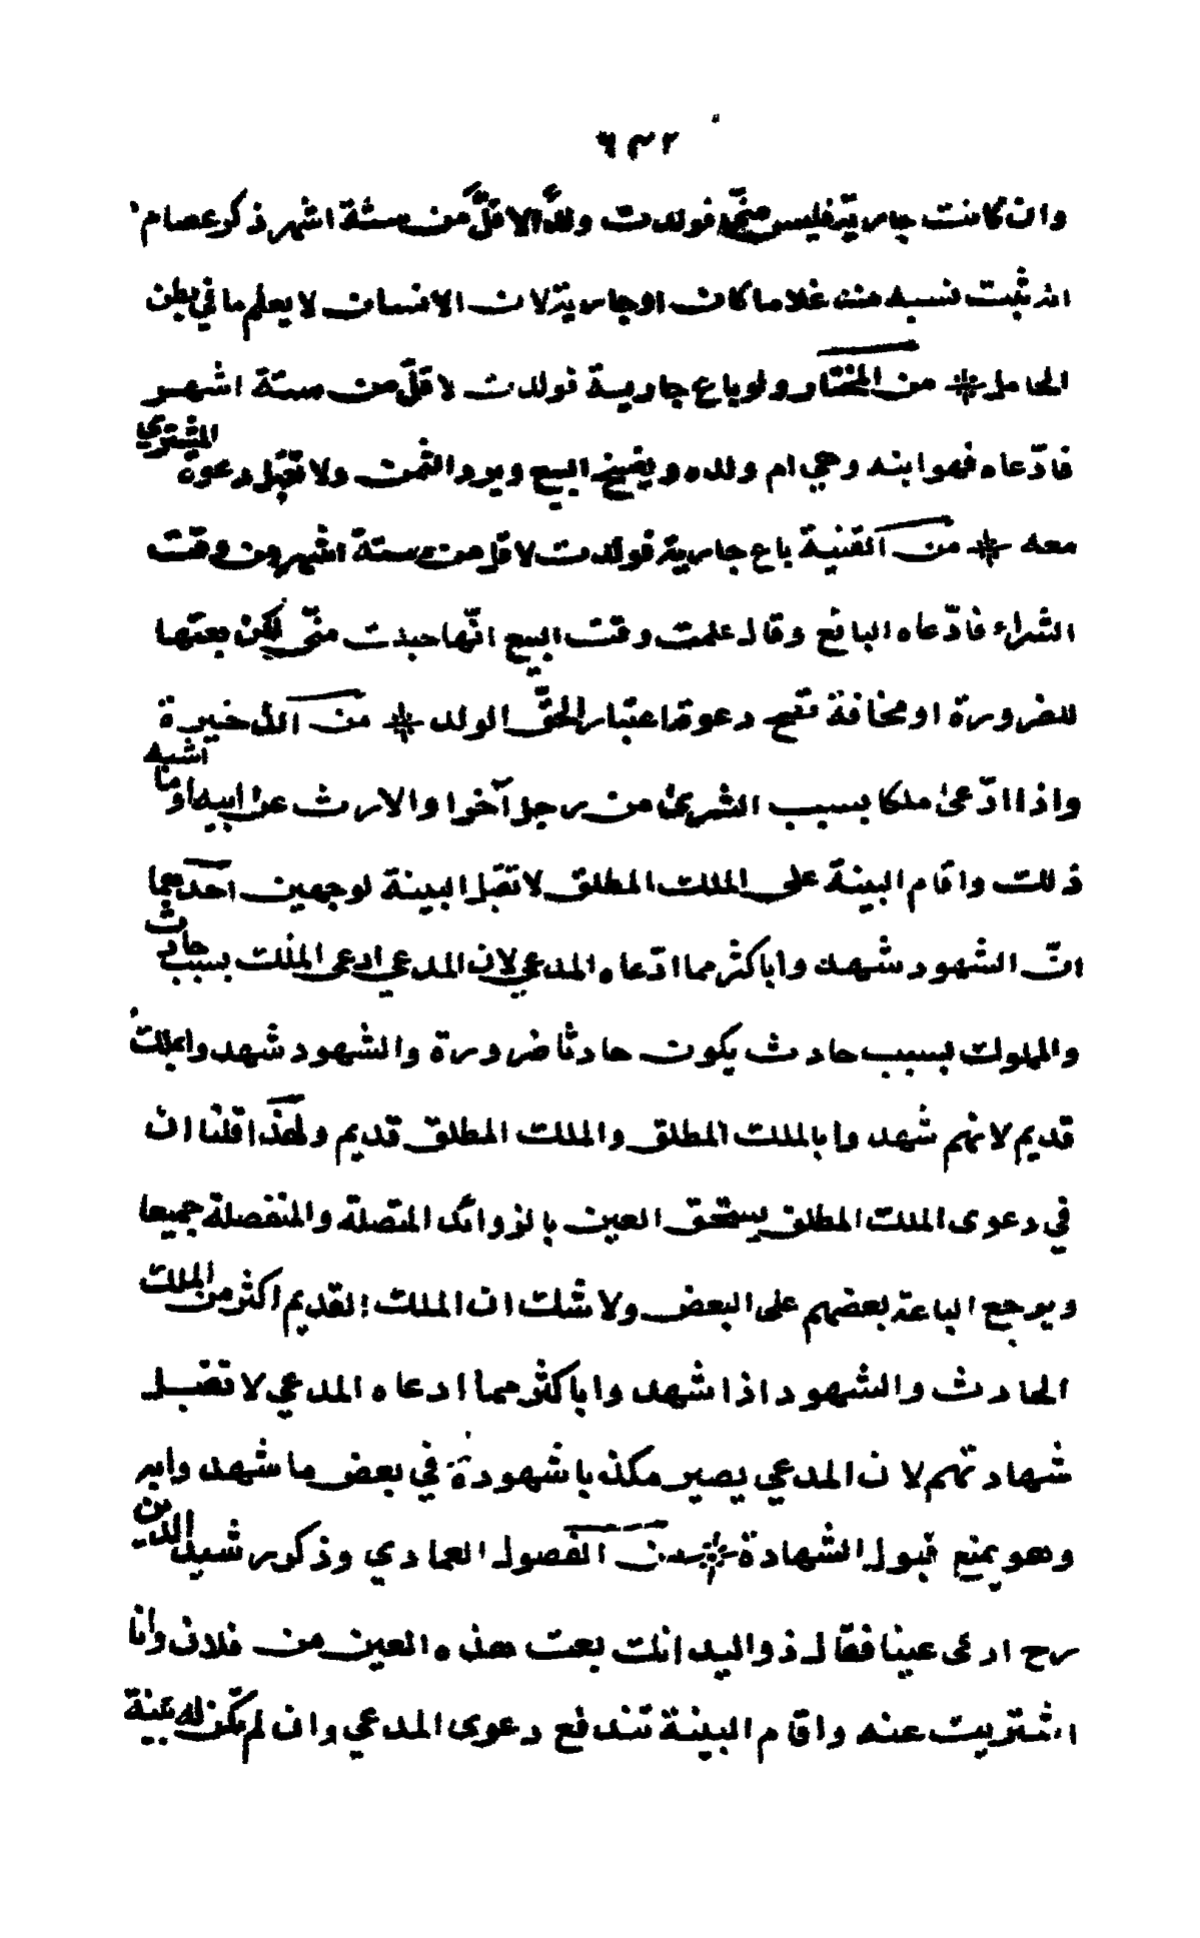 ٦٣٢
وان كانت جارية فليس منّي فولدت ولدًا لاقلّ من ستة اشهر ذكر عصام
انه ثبت نسبه منه غلاما كان اوجارية لان الانسان لا يعلم ما في بطن
الحامل * من المختار ولو باع جارية فولدت لاقلّ من ستة اشهر
فادّعاه فهو ابنه وهي ام ولده ويفسخ البيع ويرد الثمن ولا تقبل دعوة المشتري
معه * من القنية باع جارية فولدت لاقل من ستة اشهر من وقت
الشراء فادّعاه البائع وقال علمت وقت البيع انّها حبلت منّي لكن بعتها
للضرورة او مخافة تصح دعوة اعتبار الحقّ الولد * من الذخيرة
واذا ادّعى ملكا بسبب الشرى من رجل آخر او الارث عن ابيه او ما اشبه
ذلك واقام البينة على الملك المطلق لا تقبل البينة لوجهين احدهما
انّ الشهود شهدوا باكثر مما ادّعاه المدعي لان المدعي ادعى الملك بسبب حادث
والمملوك بسبب حادث يكون حادثا ضرورة والشهود شهدوا بملك
قديم لانهم شهدوا بالملك المطلق والملك المطلق قديم ولهذا قلنا ان
في دعوى الملك المطلق يستحق العين بالزوائد المتصلة والمنفصلة جميعا
ويرجع الباعة بعضهم على البعض ولا شك ان الملك القديم اكثر من الملك
الحادث والشهود اذا شهدوا باكثر مما ادعاه المدعي لا تقبل
شهادتهم لان المدعي يصير مكذبا شهوده في بعض ما شهدوا به
وهو يمنع قبول الشهادة * من الفصول العمادي وذكر رشيد الدين
رح ادعى عينا فقال ذو اليد انك بعت هذه العين من فلان وانا
اشتريت عنه واقام البينة تندفع دعوى المدعي وان لم يكن له بينة